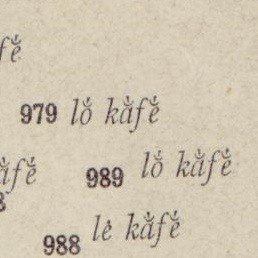 fĕ́
979 lŏ́ kằfĕ́
ằfĕ́
989 lŏ́ kằfĕ́
8
988 lė kằfĕ́